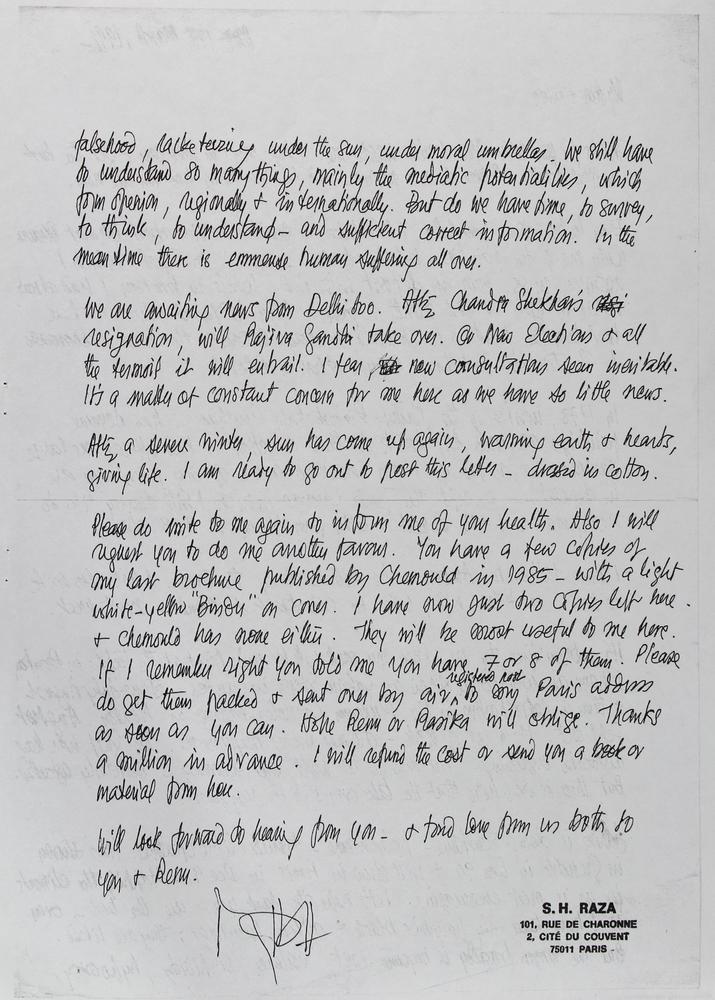 falsehood, racketeering under the sun, under moral umbrellas. We still have
to understand so many things, mainly the mediatic potentialities, which
form openion, regionally & internationally. But do we have time, to survey,
to think, to understand – and sufficient correct information. In the
mean time there is emmense human suffering all over.
We are awaiting news from Delhi too. After Chandra Shekhar's
resignation, will Rajiva Gandhi take over. Or New Elections & all
the termoil it will entrail. I fear, new consultations seem inevitable.
It's a matter of constant concern for me here as we have so little news.
After a severe winter, sun has come up again, warming earth & hearts,
giving life. I am ready to go out to post this letter – dressed in cotton.
Please do write to me again to inform me of your health. Also I will
request you to do me another favour. You have a few copies of
my last brochure published by Chemould in 1985 – with a light
white-yellow "Bindu" on cover. I have now just two copies left here.
& Chemould has none either. They will be most useful to me here.
If I remember right you told me you have 7 or 8 of them. Please
do get them packed & sent over by air registered post to my Paris address
as soon as you can. Hope Renu or Rasika will oblige. Thanks
a million in advance. I will refund the cost or send you a book or
material from here.
Will look forward to hearing from you – & fond love from us both to
you & Renu.
S. H. RAZA
101, RUE DE CHARONNE
2, CITÉ DU COUVENT
75011 PARIS -